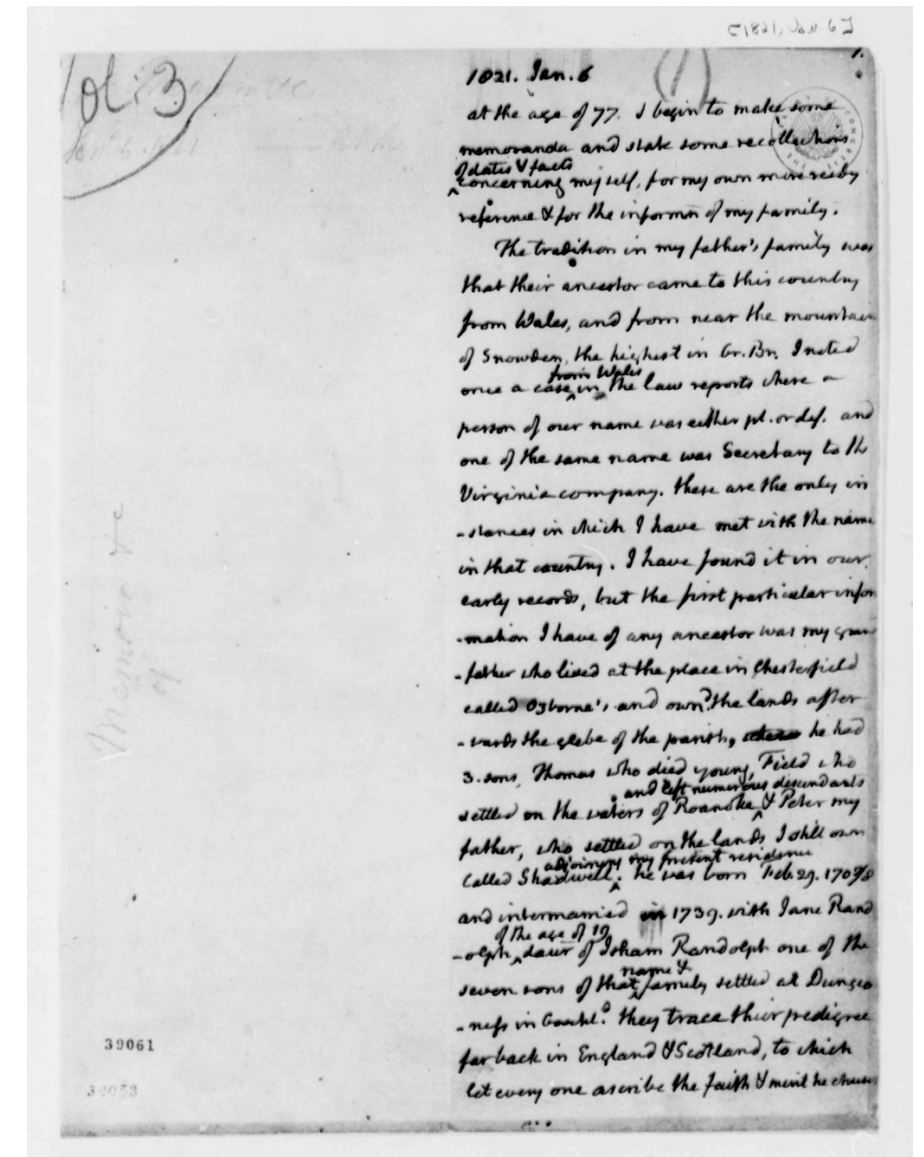 [1821, Jan. 6]
Vol: 3
1.
(1)
1821. Jan. 6
at the age of 77. I begin to make some
memoranda and state some recollections
of dates & facts
^concerning myself, for my own more ready
reference & for the informn of my family.
The tradition in my father's family was
that their ancestor came to this country
from Wales, and from near the mountain
of Snowden, the highest in Gr. Br. I noted
from Wales
once a case ^ in the law reports where a
person of our name was either pl. or def. and
one of the same name was Secretary to the
Virginia company. these are the only in
-stances in which I have met with the name
in that country. I have found it in our
early records, but the first particular infor
-mation I have of any ancestor was my grand
-father who lived at the place in Chesterfield
called Ozborne's and own'd the lands after
-wards the glebe of the parish, he had
3. sons, Thomas who died young, Field who
and left numerous descendants
settled on the waters of Roanoke ^ & Peter my
father, who settled on the lands I still own
adjoining my present residence
called Shadwell ^. he was born Feb. 29. 1707/8
and intermarried in 1739. with Jane Rand
of the age of 19
-olph, ^ daur of Isham Randolph one of the
name &
seven sons of that ^ family settled at Dungeo
-ness in Goochld. they trace their pedigree
far back in England & Scotland, to which
let every one ascribe the faith & merit he chuses
Memoir &c
of
39061